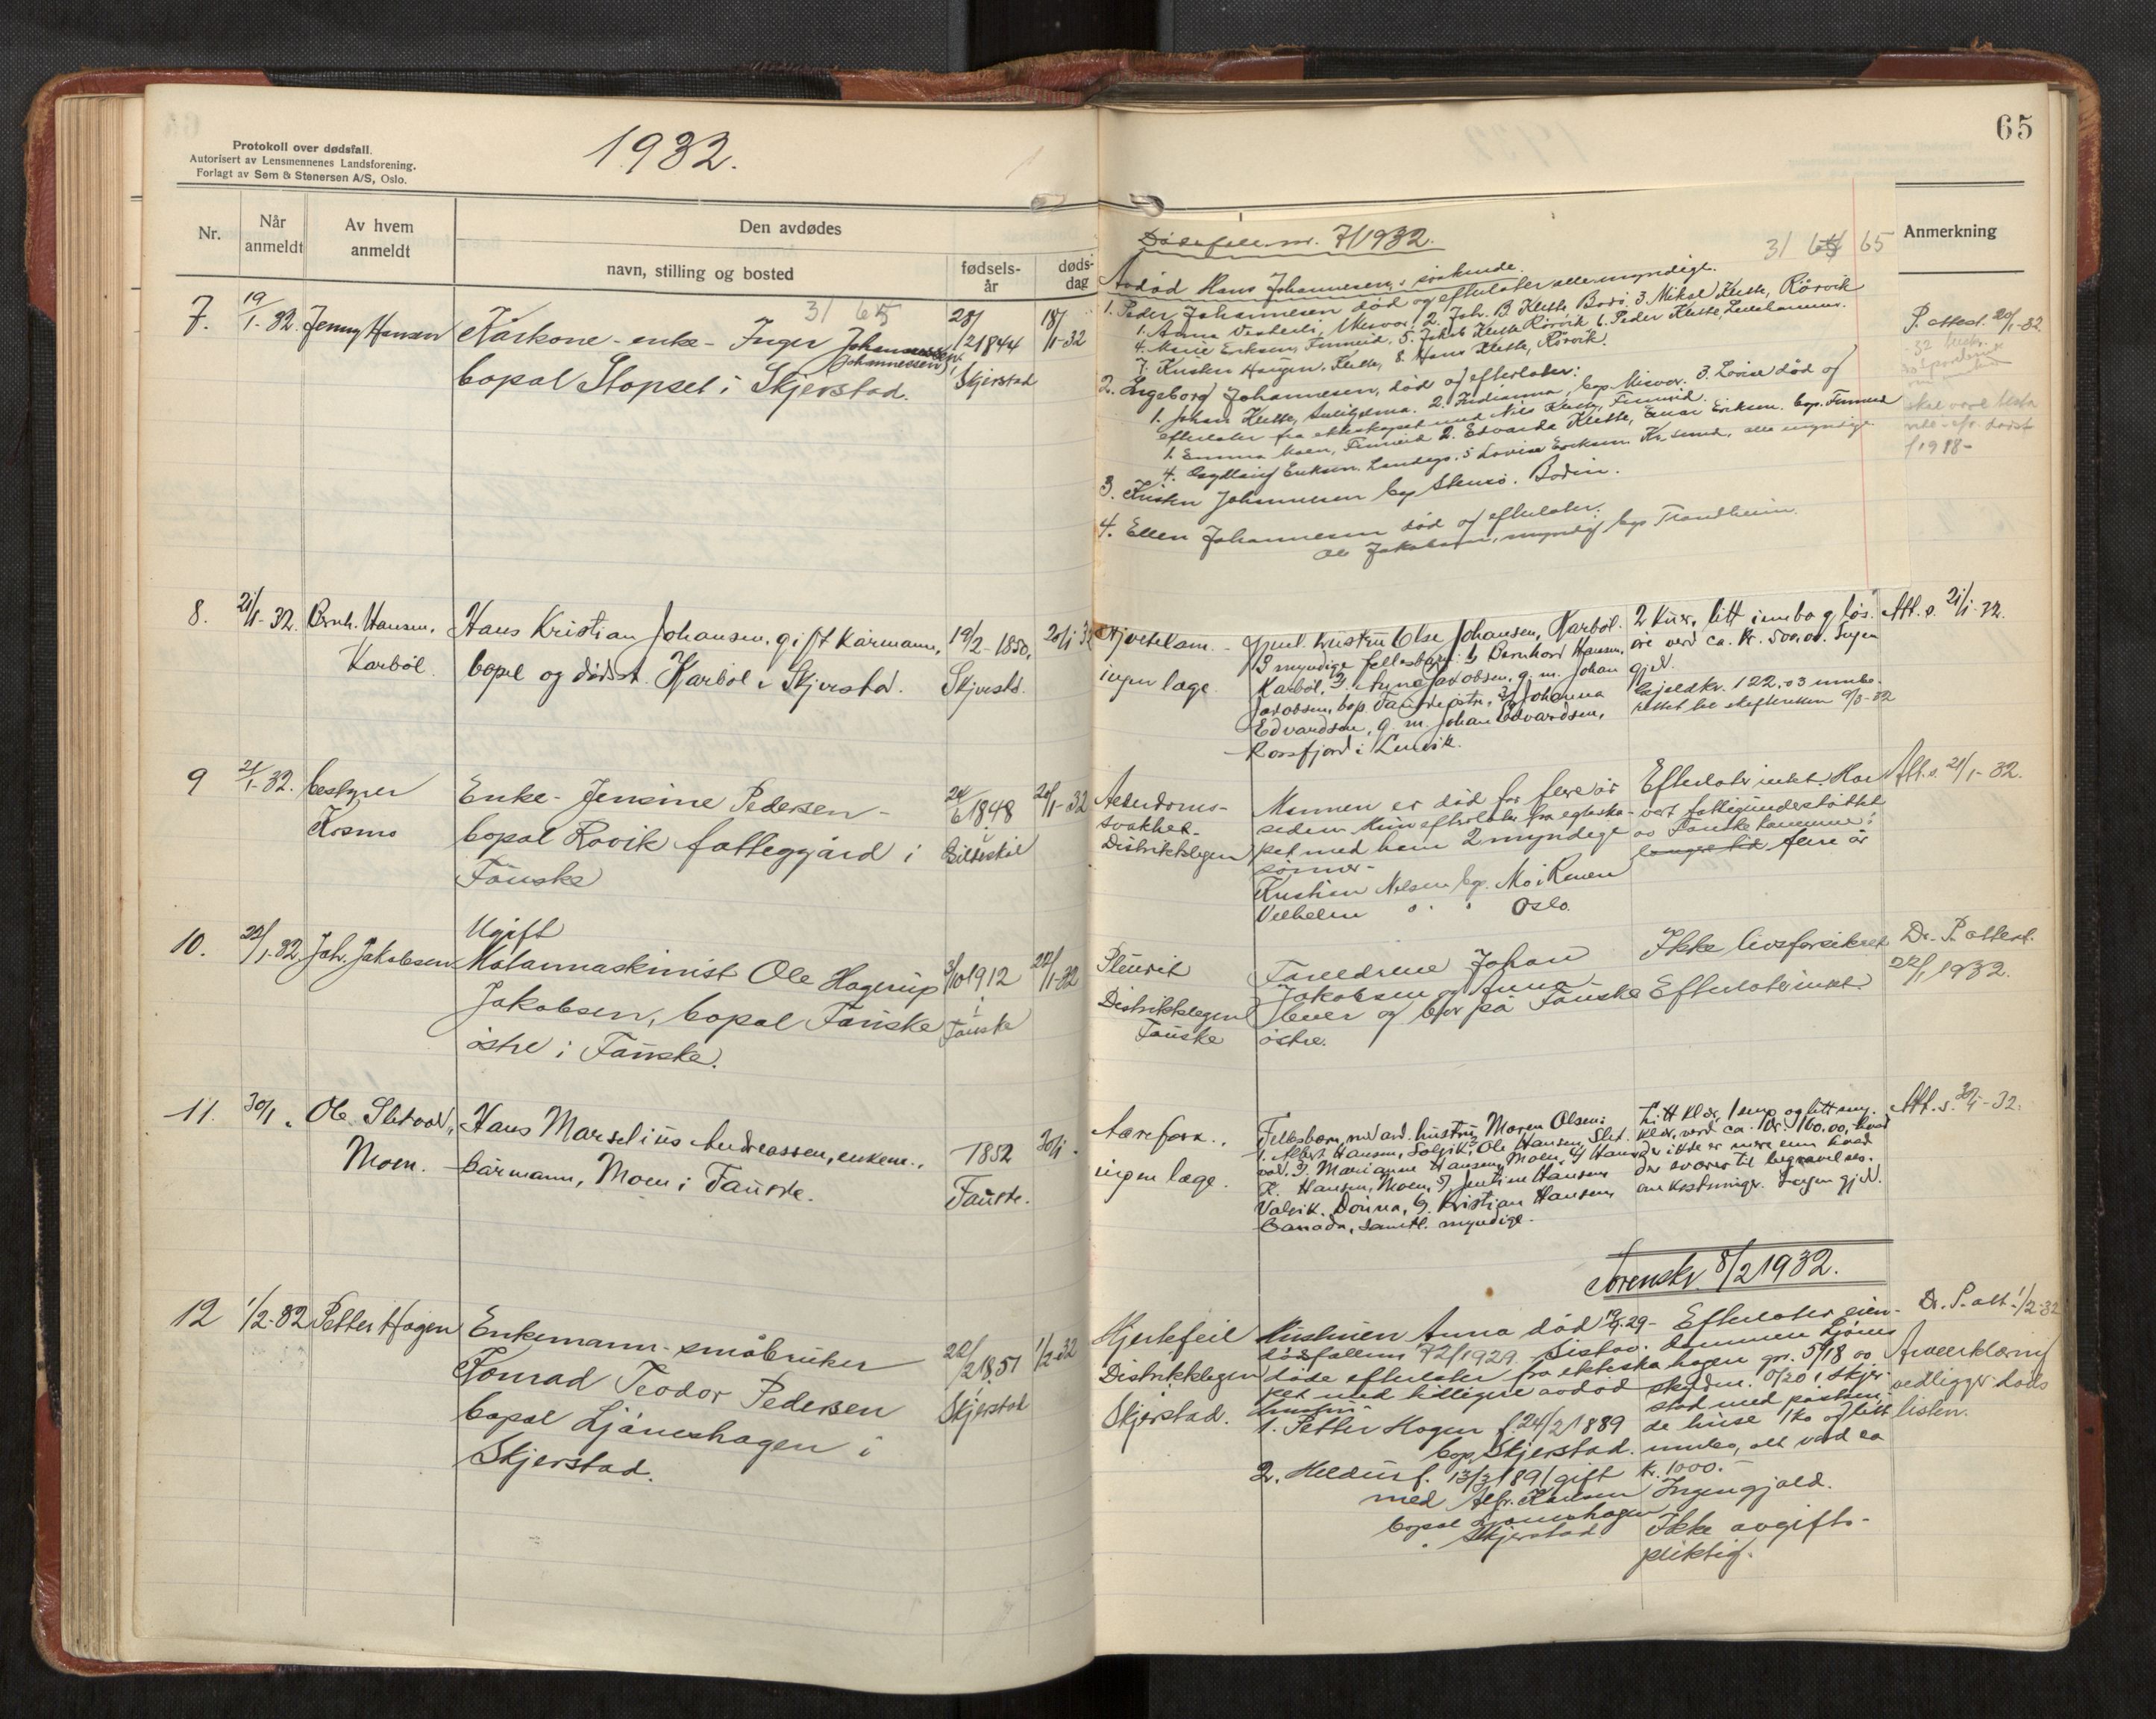 Protokoll over dødsfall.
Autorisert av Lensmennenes Landsforening.
Forlagt av Sem & Stenersen A/S, Oslo.
1932.
Nr.
Når anmeldt
Av hvem anmeldt
Den avdødes
navn, stilling og bosted
fødsels-
år
døds-
dag
7.
19/1-32.
Jenny Hansen
Kårkone - enke - Inger Johannessen
Johannessen,
bopæl Stopset i Skjerstad.
31 65
28/
12 1844
Skjerstad
18/1-32
8.
21/1-32.
Bernh. Hansen,
Karbøl.
Hans Kristian Johansen, gift kårmann,
bopel og dødsst. Karbøl i Skjerstad.
19/2-1850,
Skjerstd.
20/1 32
9
21/1-32.
bestyrer
Kosmo
Enke - Jensine Pedersen -
bopæl Rovik fatteggård i
Fauske
24/
6 1848
i
20/1-32
10.
22/1-32
Joh. Jakobsen
Ugift
Ole Hagerup
Jakobsen, bopæl Fauske
østre i Fauske.
3/10 1912
i
Fauske
22/1-32
11.
30/1 "
Ole Sletvold,
Moen.
Hans Marselius Andreassen, enkem.,
kårmann, Moen i Fauske.
1852
Fauske.
30/1 "
12
1/2-32
Petter Hagen
Enkemann - småbruker
Konrad Teodor Pedersen
bopæl Ljåneshagen i
Skjerstad.
22/
2 1851
i
Skjerstad
1/2-32
65
Anmerkning
Dødsfall nr. 7/1932.
31 64 65
Avdød Hans Johannesens søskende.
1. Peder Johannesen død og efterlater alle myndige.
1. Anna Vesterli, Misvær, 2. Joh. B. Klette, Bodø, 3. Mikal Klette, Rörvik
4. Marie Eriksen, Finneid, 5. Jakob Klette Rörvik 6. Peder Klette,
7. Kristen Haugen. Klette, 8. Hans Klette, Rörvik.
2. Ingeborg Johannesen, død og efterlater:
1. Johan Klette, 2. bop. Misvær. 3. Lovise død og
efterlater fra ekteskapet med Nils Klette, Finneid.
1. Emma Moen, Finneid 2. Edvarda Klette, Einar Eriksen. bop. Finneid
4. Eriksen, 5 Lovise Eriksen alle myndige
3. Kristen Johannesen bop Bodin.
4. Ellen Johannesen død og efterlater:
Ole Jakobsen, myndig bop Trondheim.
P. attest. 20/1-32.
skal være
f 1918-
Hjertelam. -
ingen læge.
Gjenl. hustru Else Johansen, Karbøl.
3 myndige fellesbarn: 1) Bernhard Hansen,
Karbøl, 2. Anna Jakobsen, g. m. Johan
Jakobsen, bop. Fauske østre, 3) Johanna
Edvardsen, g. m. Johan Edvardsen,
Rossfjord i Lenvik.
2 kuer, litt innbo og løs-
øre verd ca. kr. 500,00. Ingen
gjeld.
Gjeld kr. 122,03
skifteretten 9/3-32
Att. s. 21/1-32.
Alderdoms-
svakhet.
Distriktslegen
Mannen er død for flere år
siden. Hun efterlater fra ekteska-
pet med ham 2 myndige
sønner -
Kristian Nilsen bop. Mo i Rana
Vilhelm " " Oslo.
Efterlater intet. Har
vært fattigunderstøttet
av Fauske kommune i
lengre tid flere år
Att. s. 21/1-32.
Pleurit
Distriktslegen
Fauske
Foreldrene Johan
Jakobsen og Anna
lever og bor på Fauske
østre.
Ikke livsforsikret
Efterlater intet.
Dr. P. attest.
22/1 1932.
ingen læge.
Fellesbarn med avd. hustru Maren Olsen:
1. Albert Hansen, Solvik, 2. Ole Hansen, Slet-
vold, 3. Marianne Hansen, Moen, 4) Hans
K. Hansen, Moen, 5) Jentine Hansen
Valvik. Dønna, 6. Kristian Hansen,
Canada, samtl. myndige.
Litt klær, 1 seng og litt seng-
klær, verd ca. kr. 100.00, hvad
der ikke er mere enn hvad
der svarer til begravelses-
omkostninger. Ingen gjeld.
Att. s. 30/1-32.
Sorenskr. 8/2 1932.
Hjertefeil
Distriktslegen
i
Skjerstad.
Hustruen Anna død 19/9-29 -
dødsfallsnr 72/1929. Sistav-
døde efterlater fra ekteska-
pet med tidligere avdød
hustru:
1. Petter Hagen f. 24/2 1889
bop. Skjerstad.
2. f. 13/3 1891 gift
med Alfr. Karlsen
bopæl Ljåneshagen
i Skjerstad
Efterlater eien-
dommen Ljånes
hagen gnr. 5/18 av
skyldm. 0/20 i Skjer-
stad med påståen-
de huse 1 ko og litt
innbo, alt verd ca
kr. 1000.-
Ingen gjæld.
Ikke avgifts-
pliktig.
Dr. P. att 1/2-32
Arveerklæring
vedligger døds
listen.